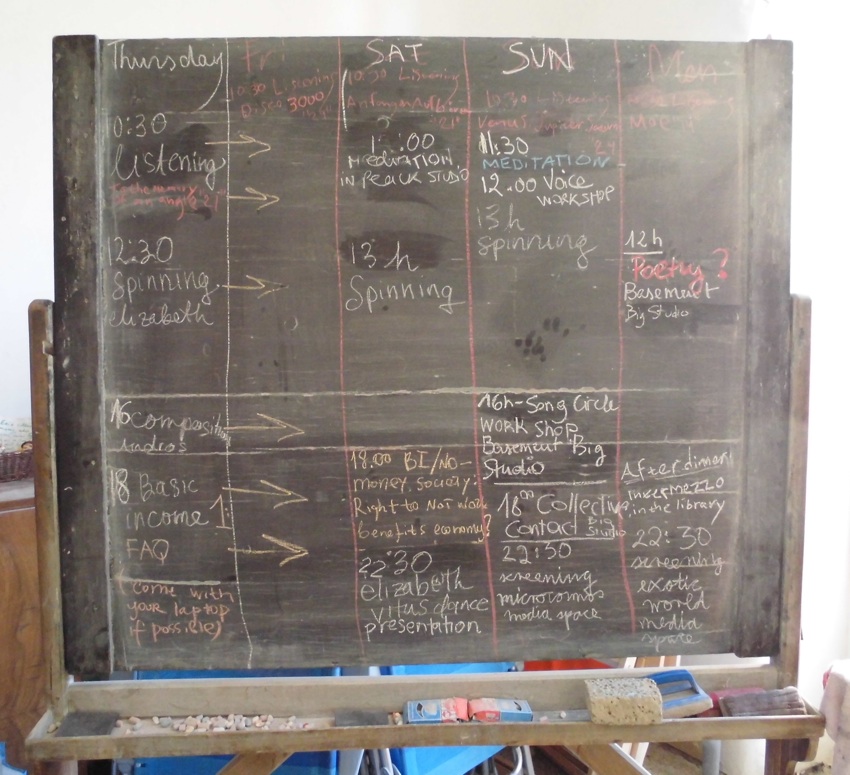 Thursday
10:30
Listening
12:30
Spinning
elizabeth
16 composition
18 Basic
income 1:
FAQ
(come with
your laptop
if possible)
Fri
10:30 Listening
Disco 3000
SAT
10:30 Listening
"21"
:00
MEDITATION
IN PEACK STUDIO
13 h
Spinning
18.00 BI/NO-
money. society:
Right to Not work
benefits economy?
22:30
elizabeth
vitus dance
presentation
SUN
10:30
Venus
11:30
MEDITATION
12.00 Voice
WORKSHOP
13 h
Spinning
16h-Song Circle
WORK SHOP
Basement Big
Studio
18°° Collective
Contact Big
Studio
22:30
screening
microcosmos
media space
Mon
12h
Poetry?
Basement
Big Studio
After dinner
intermezzo
in the library
22:30
screening
exotic
world
media
space